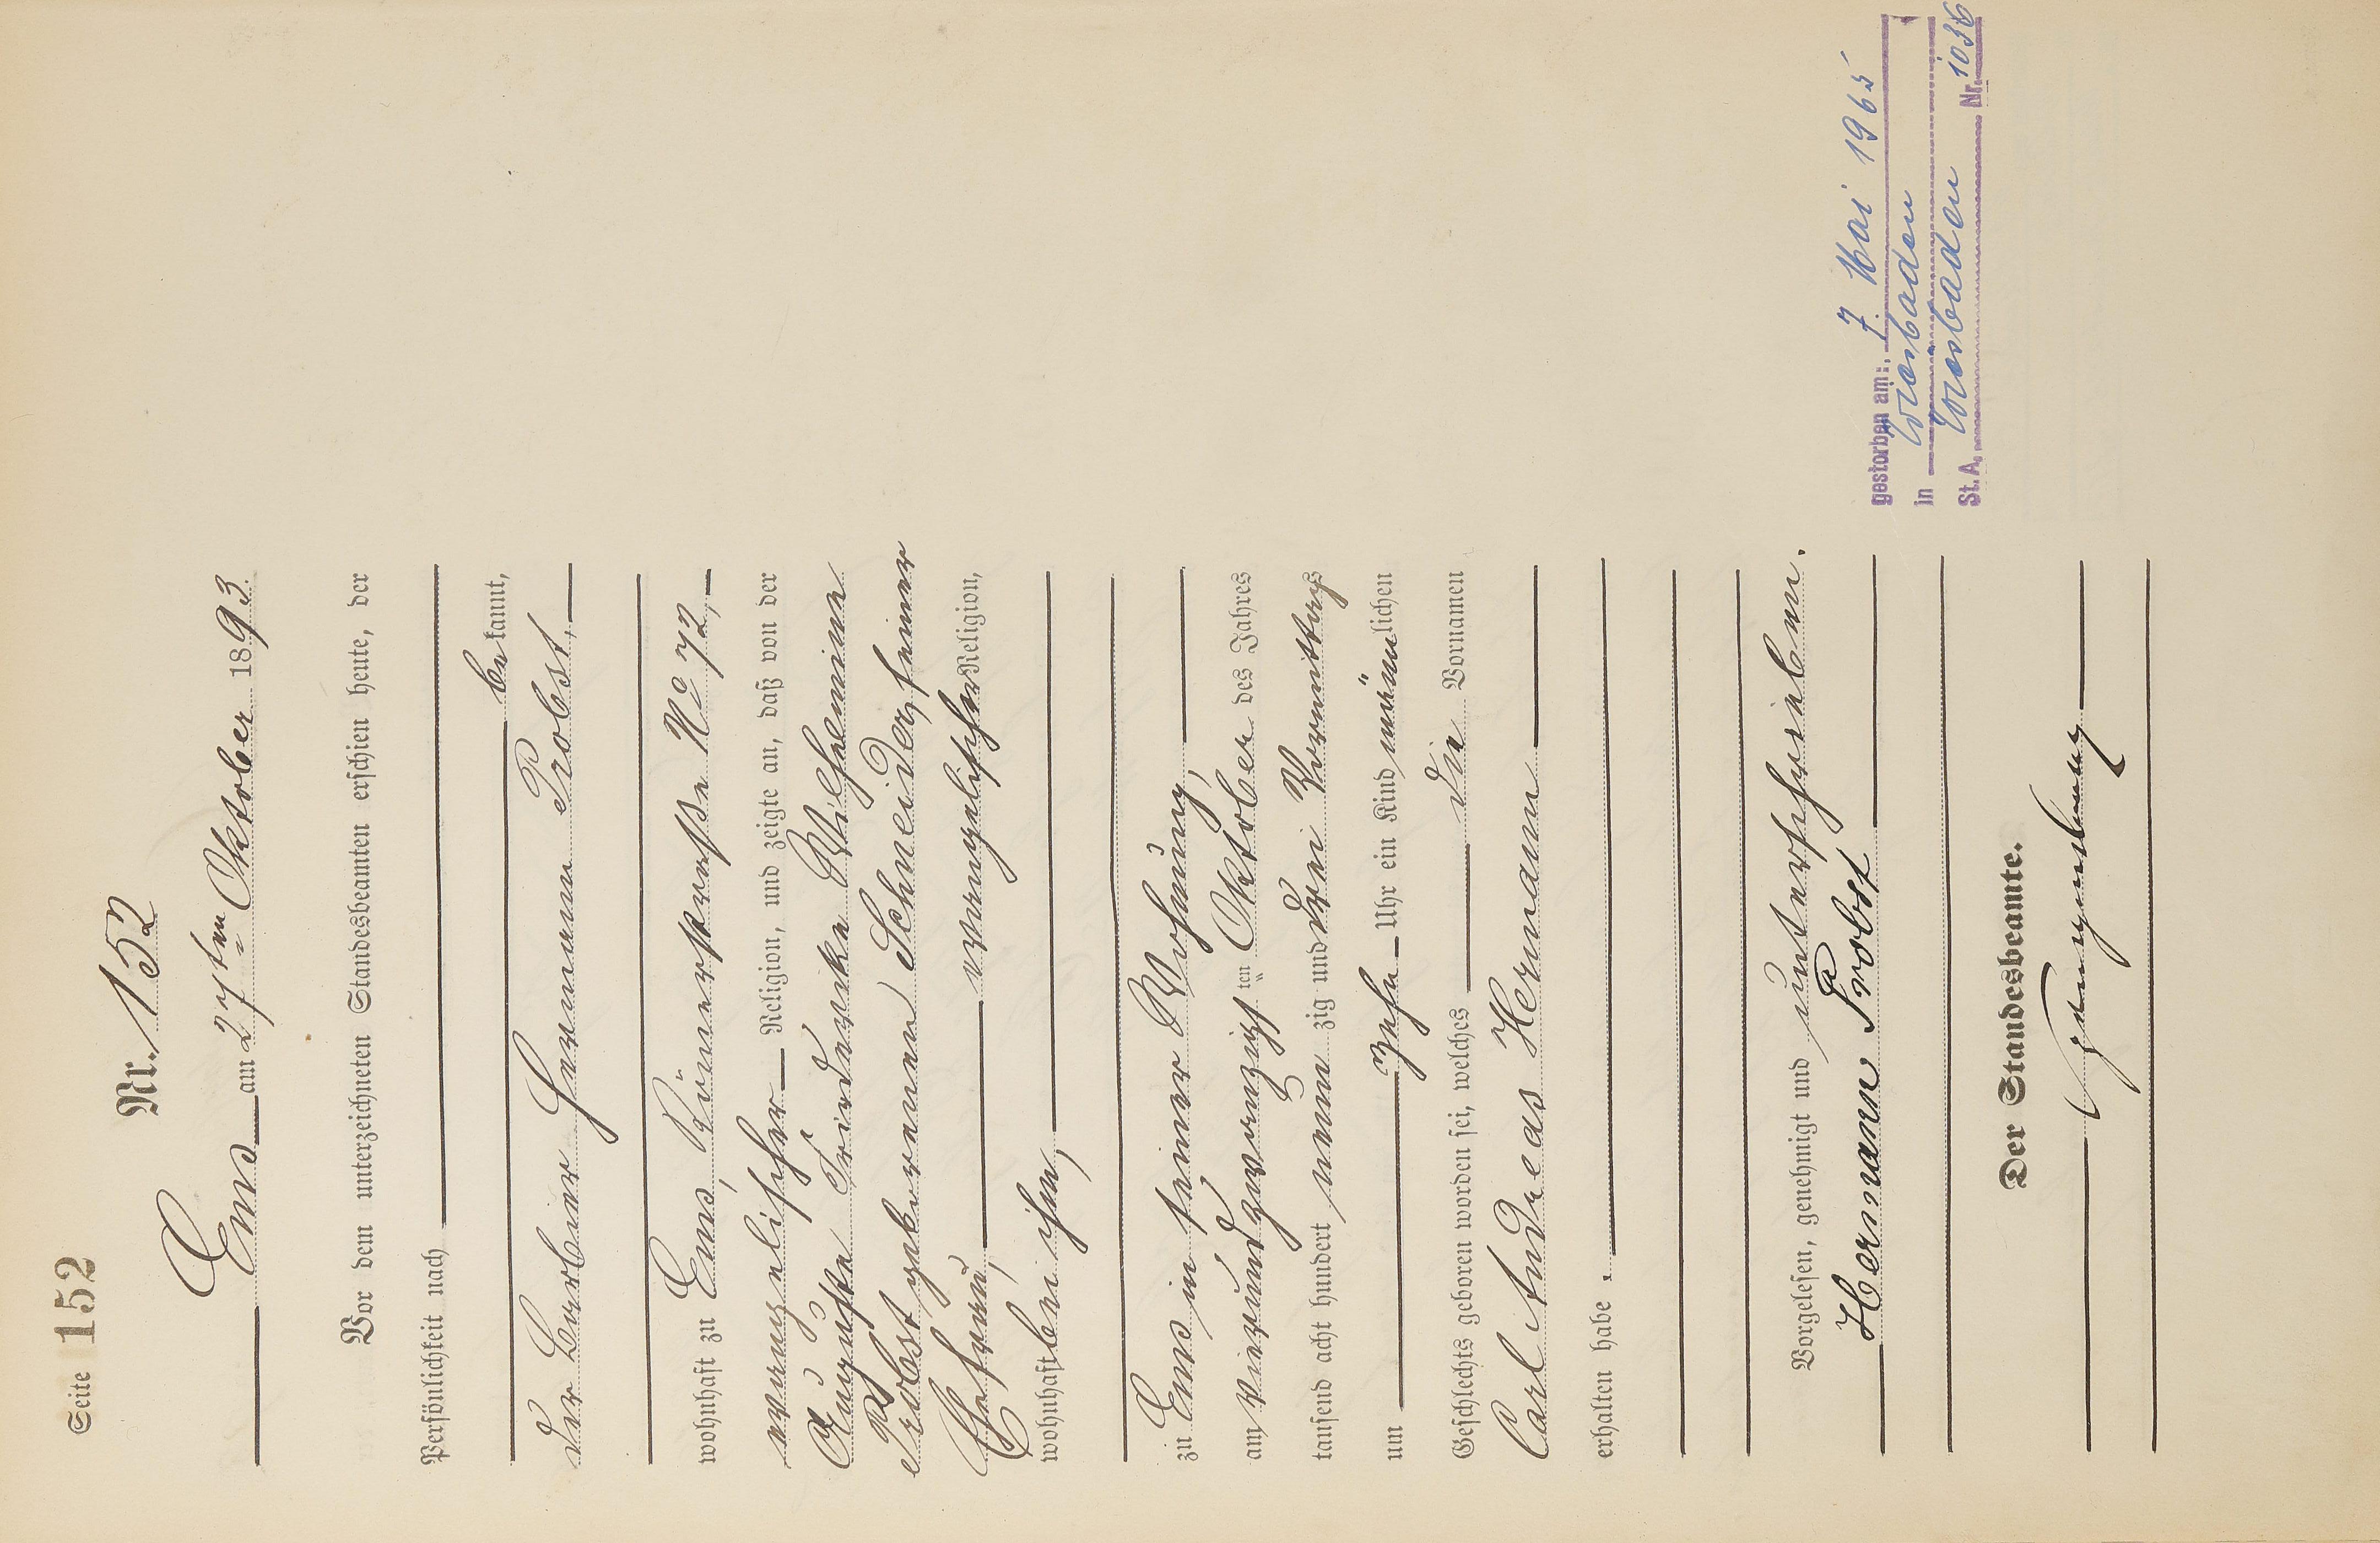 Seite 152
Nr. 152
Ems am 27ten Oktober 1893.
Vor dem unterzeichneten Standesbeamten erschien heute, der
Persönlichkeit nach
be kannt,
der Barbier Hermann Probst,
wohnhaft zu Ems, Römerstraße No 72,
evangelischer Religion, und zeigte an, daß von der
Auguste Friedericke Wilhemine
Probst geborenen Schneider, seiner
Ehefrau, evangelischer Religion,
wohnhaft bei ihm,
zu Ems in seiner Wohnung,
am vierundzwanzigsten Oktober des Jahres
tausend acht hundert neun zig und drei Vormittags
um zehn Uhr ein Kind männlichen
Geschlechts geboren worden sei, welches die Vornamen
Carl Andreas Hermann
erhalten habe.
Vorgelesen, genehmigt und unterschrieben.
Hermann Probst
Der Standesbeamte.
gestorben am: 7. Mai 1965
in Wiesbaden
St. A. Wiesbaden Nr. 1036